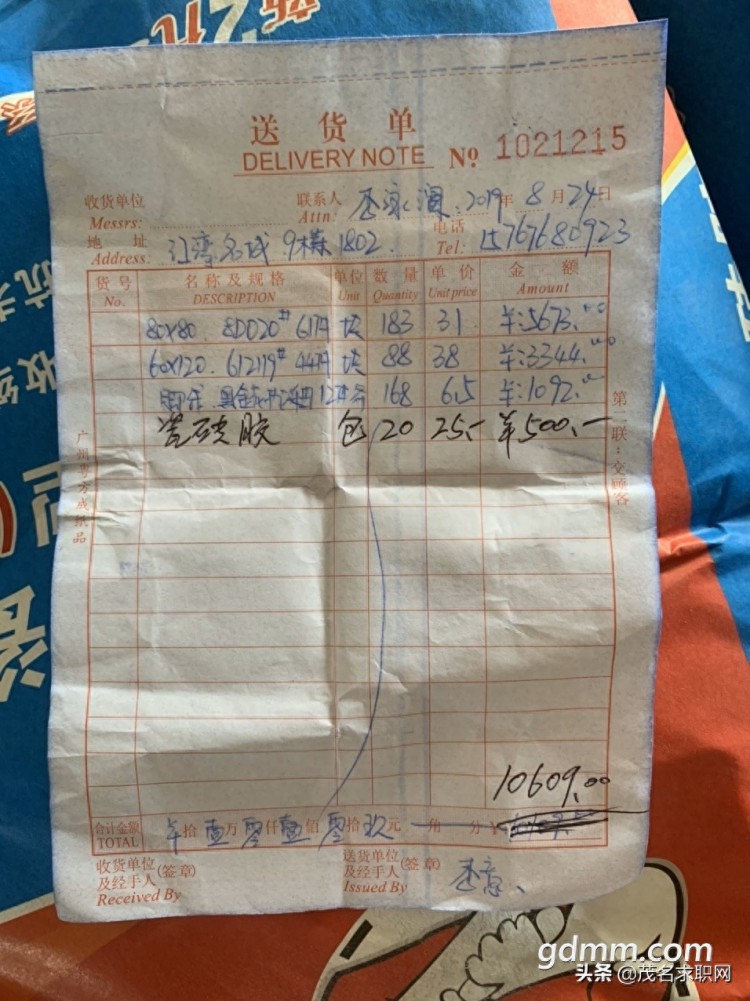 送货单
DELIVERY NOTE № 1021215
收货单位 联系人
Messrs: Attn: 2019年8月24日
地址 江湾名城 9栋 1802 电话
Address: Tel: 15767680923
货号 名称及规格 单位 数量 单价 金额
No. DESCRIPTION Unit Quantity Unit price Amount
80x80. 8D020# 61件 块 183 31 ¥:5673.00
60x120. 612119# 44件 块 88 38 ¥:3344.00
168 6.5 ¥:1092.00
瓷砖胶 包 20 25.- ¥500.-
第二联:交顾客
10609.00
合计金额 拾壹万零仟壹佰零拾玖元 角 分 ¥
TOTAL
收货单位 (签章) 送货单位 (签章)
及经手人 及经手人
Received By Issued By
gdmm.com
头条 @茂名求职网